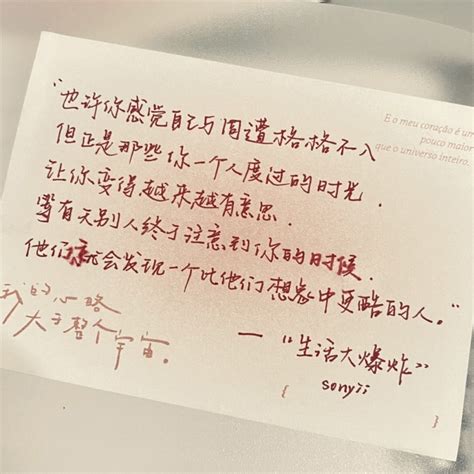 “也许你感觉自己与周遭格格不入
但正是那些你一个人度过的时光.
让你变得越来越有意思.
等有天别人终于注意到你的时候.
他们就会发现一个比他们想象中更酷的人.”
—“生活大爆炸”
sonyii
E o meu coração é um
pouco maior
que o universo inteiro.
我的心略
大于整个宇宙。
{ }